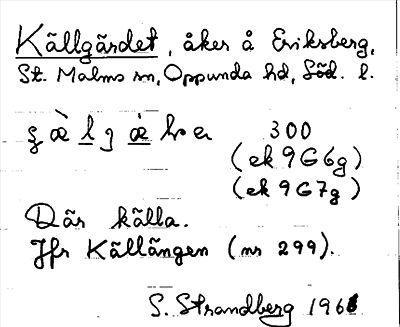 Källgärdet, åker å Eriksberg,
St. Malms sn, Oppunda hd, Söd. l.
300
(ek 9G6g)
(ek 9G7g)
Där källa.
Jfr Källängen (nr 299).
S. Strandberg 1968